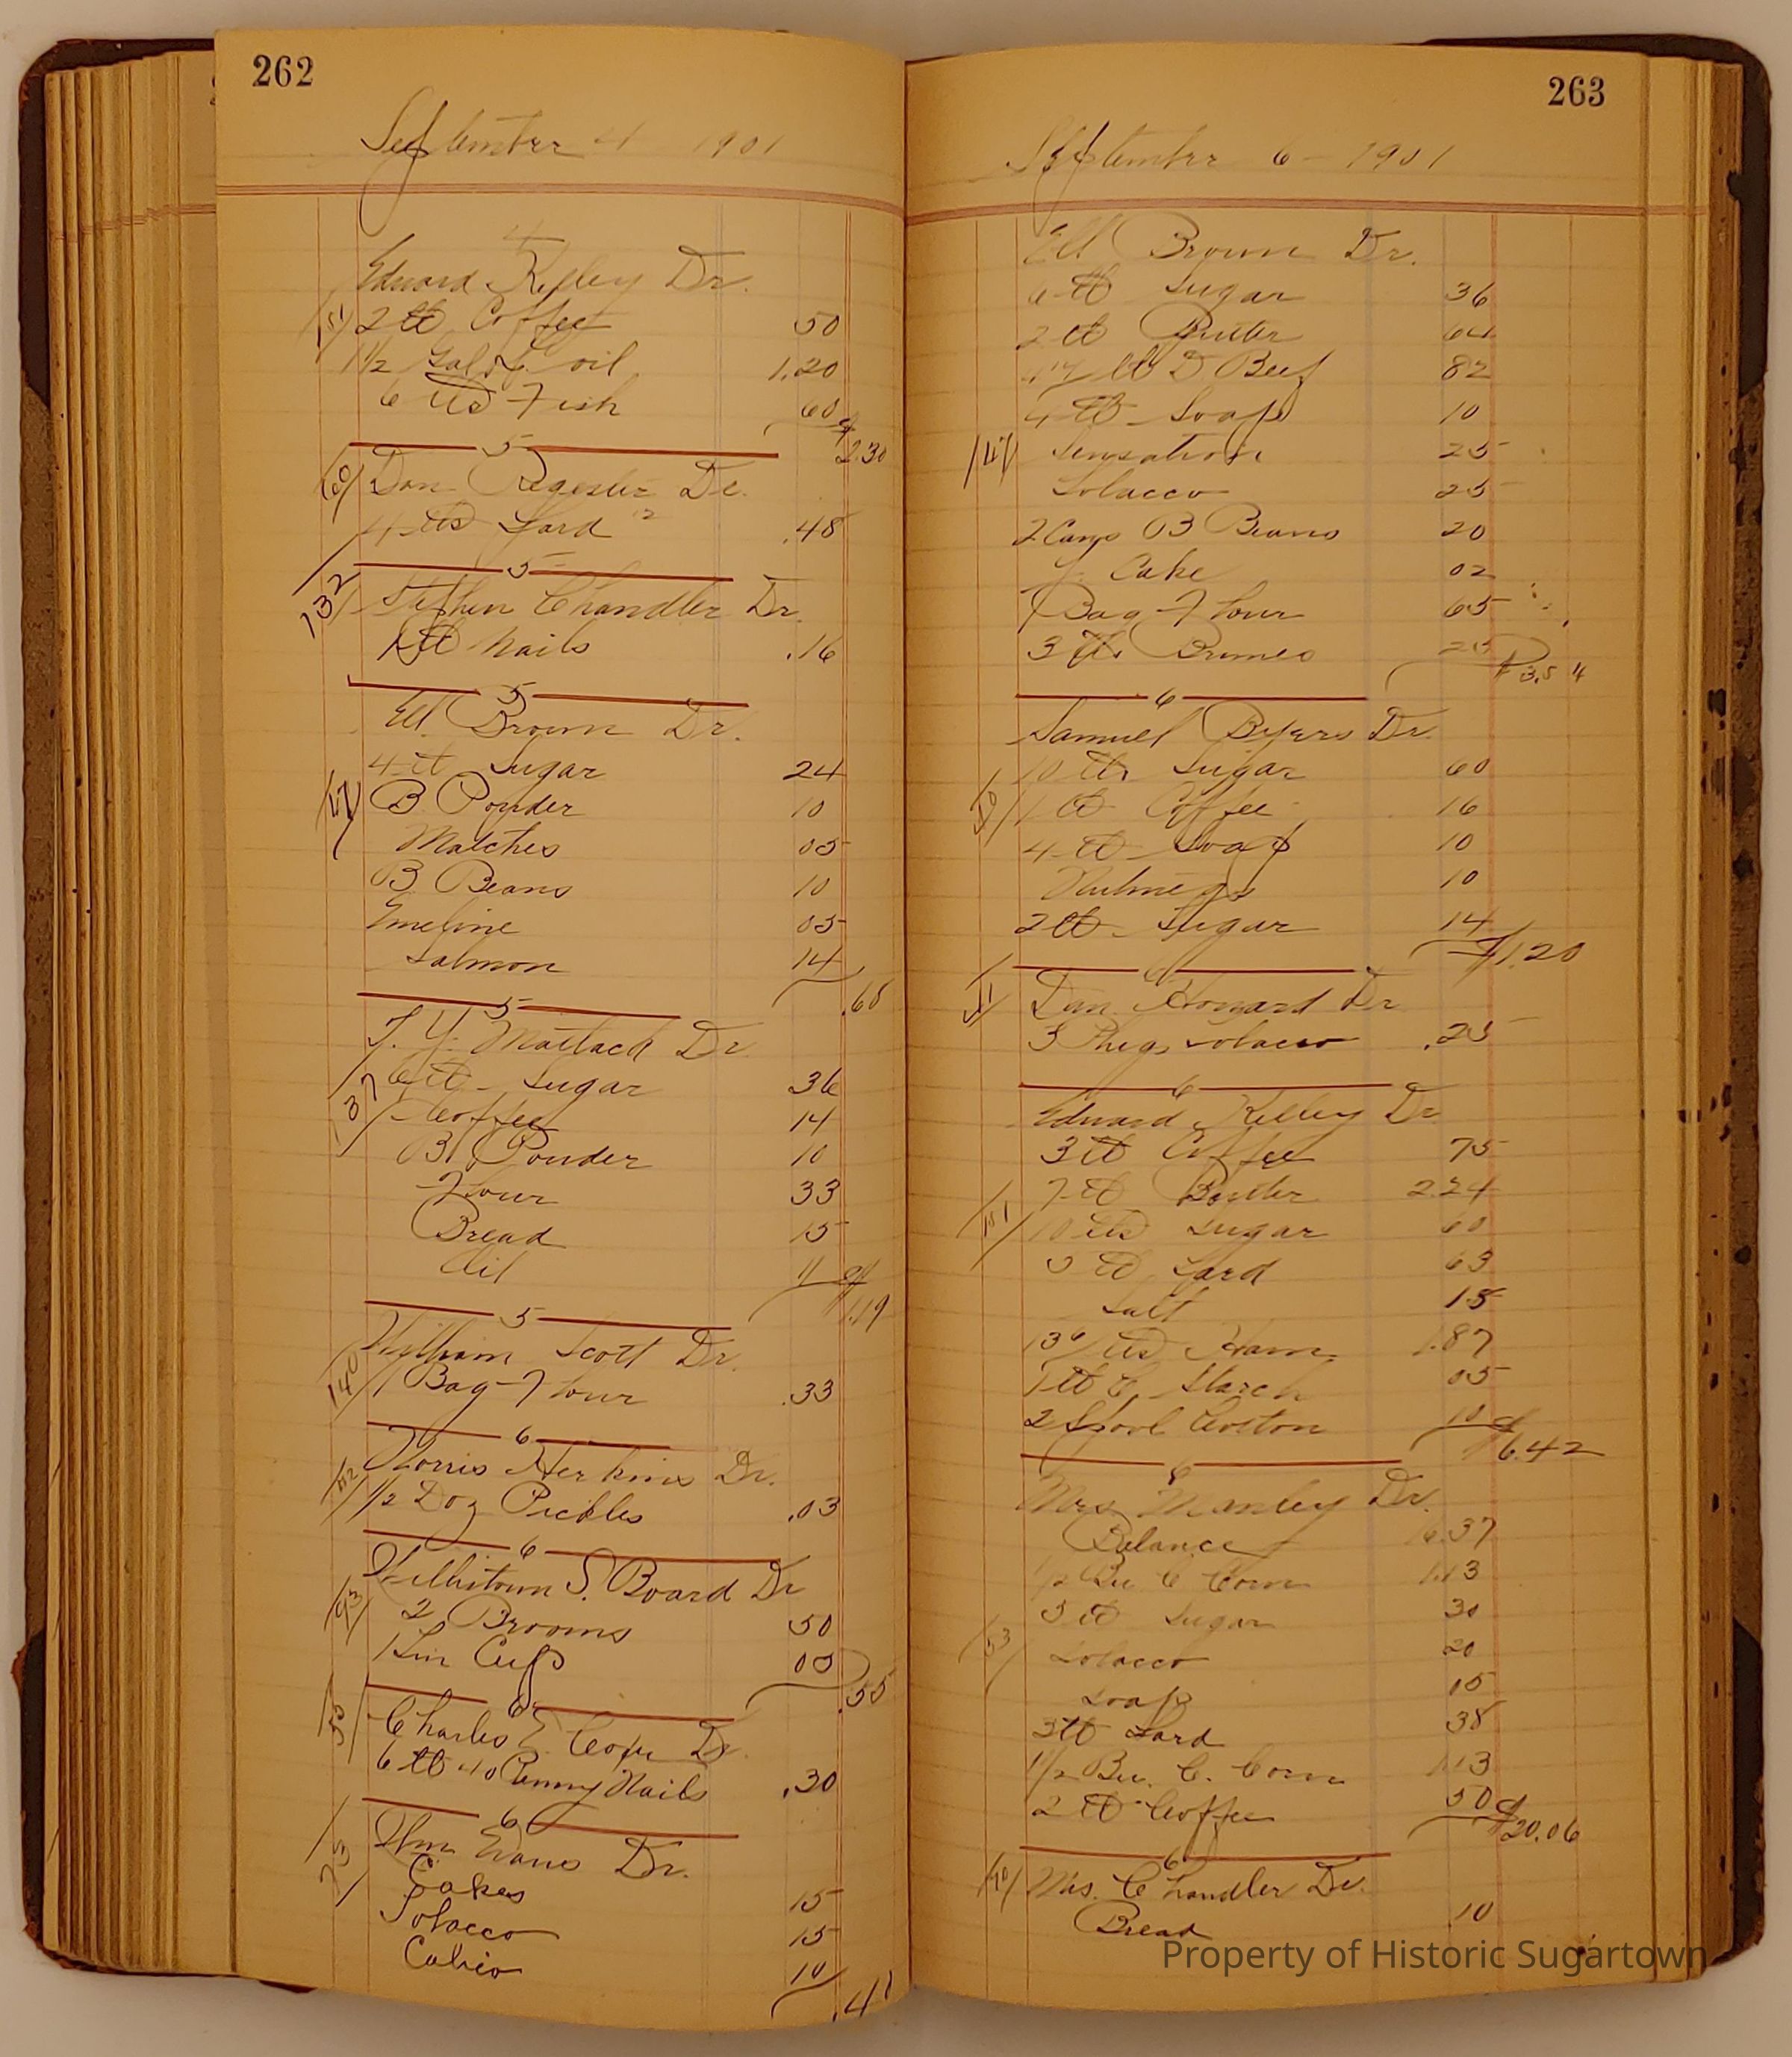 262
September 4 1901
4
Edward Kelley Dr.
151 2 lb Coffee 50
1 1/2 Gal. C. oil 1.20
6 lbs Fish 60
$2.30
5
60 Dan Regester Dr.
4 lbs Lard 12 .48
5
132 Stephen Chandler Dr.
lb Nails .16
5
Ell Brown Dr.
4 lb Sugar 24
147 B Powder 10
Matches 05
B Beans 10
Emeline 05
Salmon 14
.68
5
T. Y. Matlack Dr
6 lb Sugar 36
137 1 " Coffee 14
B Powder 10
Flour 33
Bread 15
Oil 11
$1.19
5
William Scott Dr.
140 1 Bag Flour .33
6
Norris Herkins Dr.
142 1/2 Doz Pickles .03
6
Willistown S. Board Dr
93 2 Brooms 50
1 Tin Cup 05
.55
6
55 Charles E. Cope Dr.
6 lb 40 Penny Nails .30
6
75 Wm Evans Dr.
Cakes 15
Tobacco 15
Calico 10
.41
263
September 6 - 1901
Ell Brown Dr.
6 lb Sugar 36
2 lb Butter 64
lb D Beef 82
4 lb Soap 10
147 Sensation 25
Tobacco 25
2 Cans B Beans 20
Cake 02
Bag Flour 65
3 lbs Prunes 25
$3.54
6
Samuel Byers Dr.
10 lbs Sugar 60
50 1 lb Coffee 16
4 lb Soap 10
Nutmegs 10
2 lb Sugar 14
$1.20
6
51 Dan Howard Dr
3 Plugs Tobacco .25
6
Edward Kelley Dr
3 lb Coffee 75
7 lb Butter 2.24
151 10 lbs Sugar 60
5 lb Lard 63
Salt 15
13 6/ lbs Ham 1.87
1 lb C. Starch 05
2 Spool Cotton 10
$6.42
6
Mrs Manley Dr.
Balance 16.37
1/2 Bu C Corn 1.13
5 lb Sugar 30
53 Tobacco 20
Soap 15
3 lb Lard 38
1 1/2 Bu. C. Corn 1.13
2 lb Coffee 50
$20.06
6
70 Mrs. Chandler Dr.
Bread .10
Property of Historic Sugartown